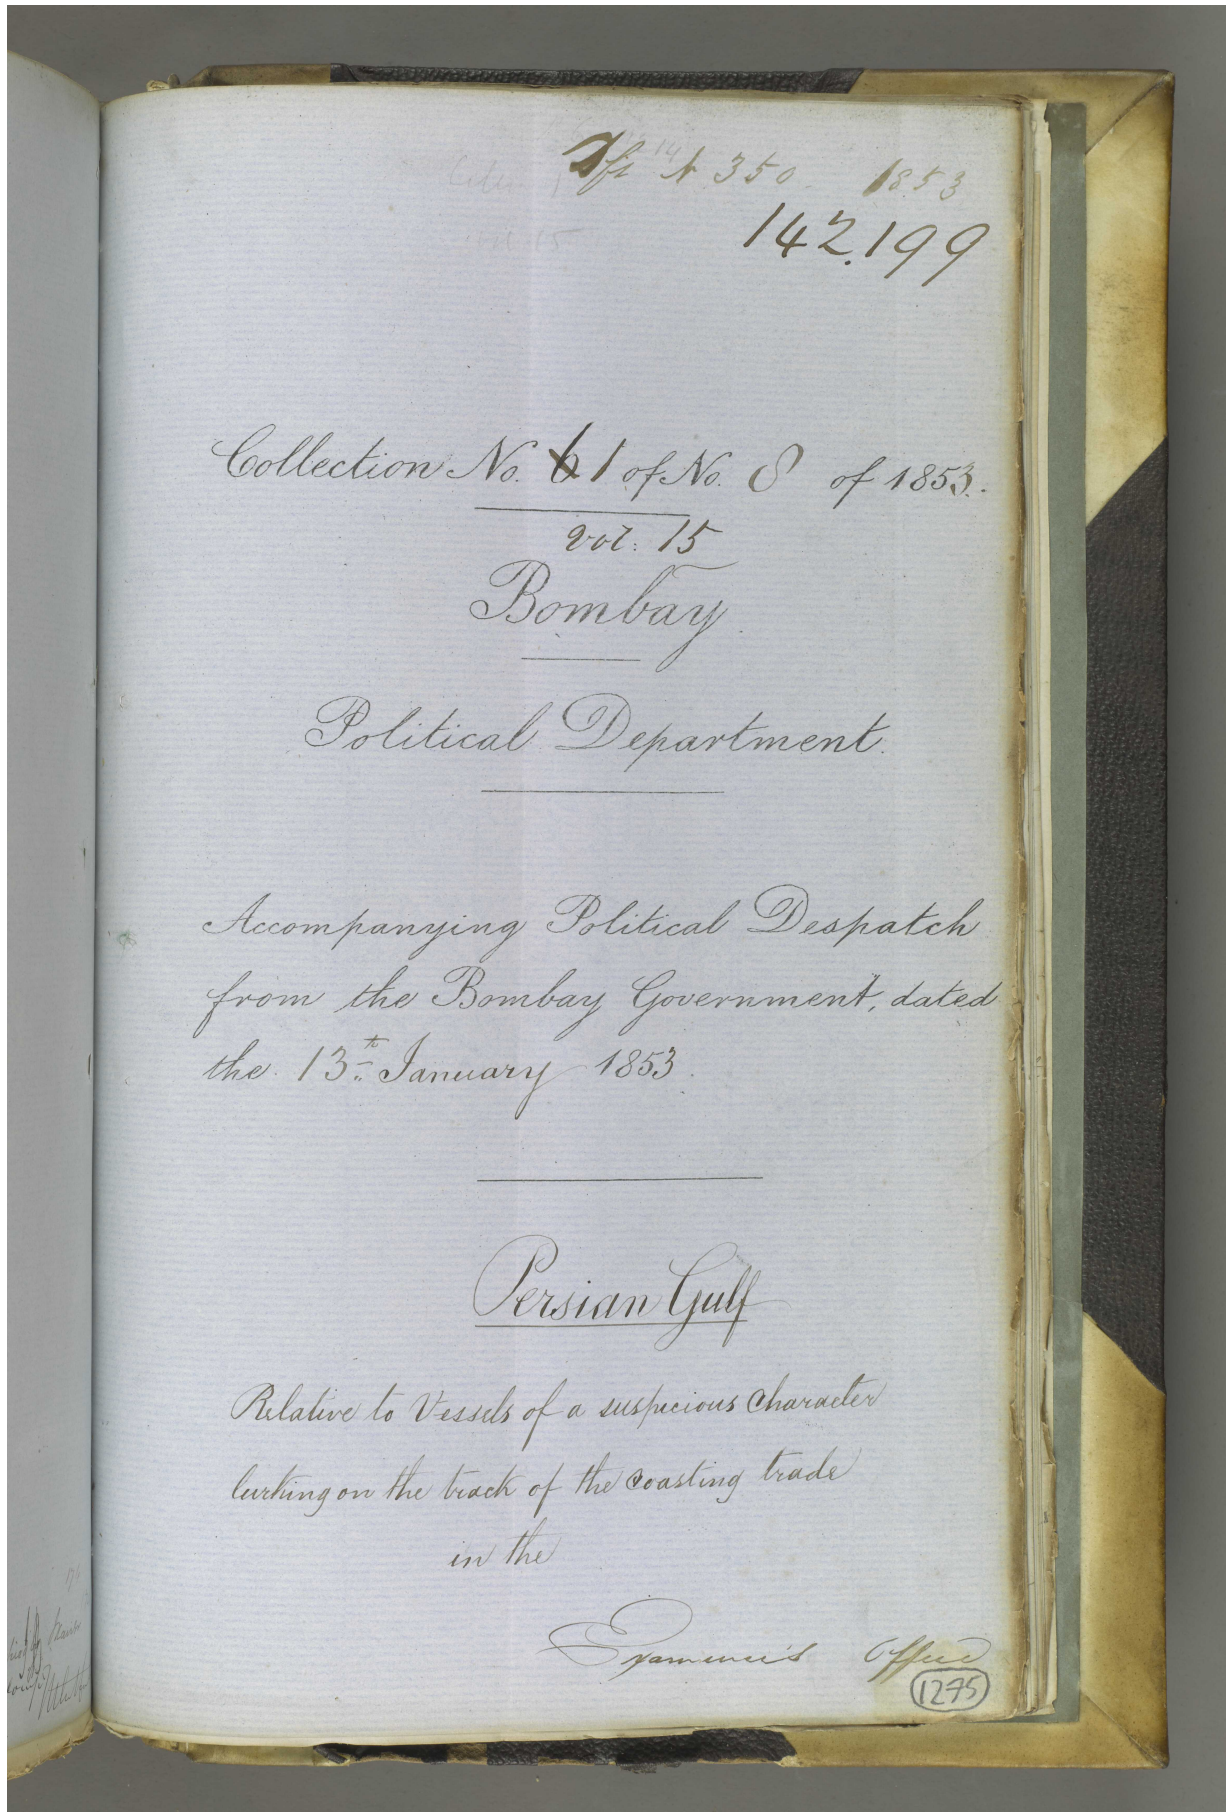 Dft 14 N 350 1853
142.199
Collection No. 1 of No. 8 of 1853.
vol: 15
Bombay
Political Department.
Accompanying Political Despatch
from the Bombay Government, dated
the 13th January 1853.
Persian Gulf
Relative to Vessels of a suspicious Character
lurking on the track of the Coasting trade
in the
Examiner's Office
1275